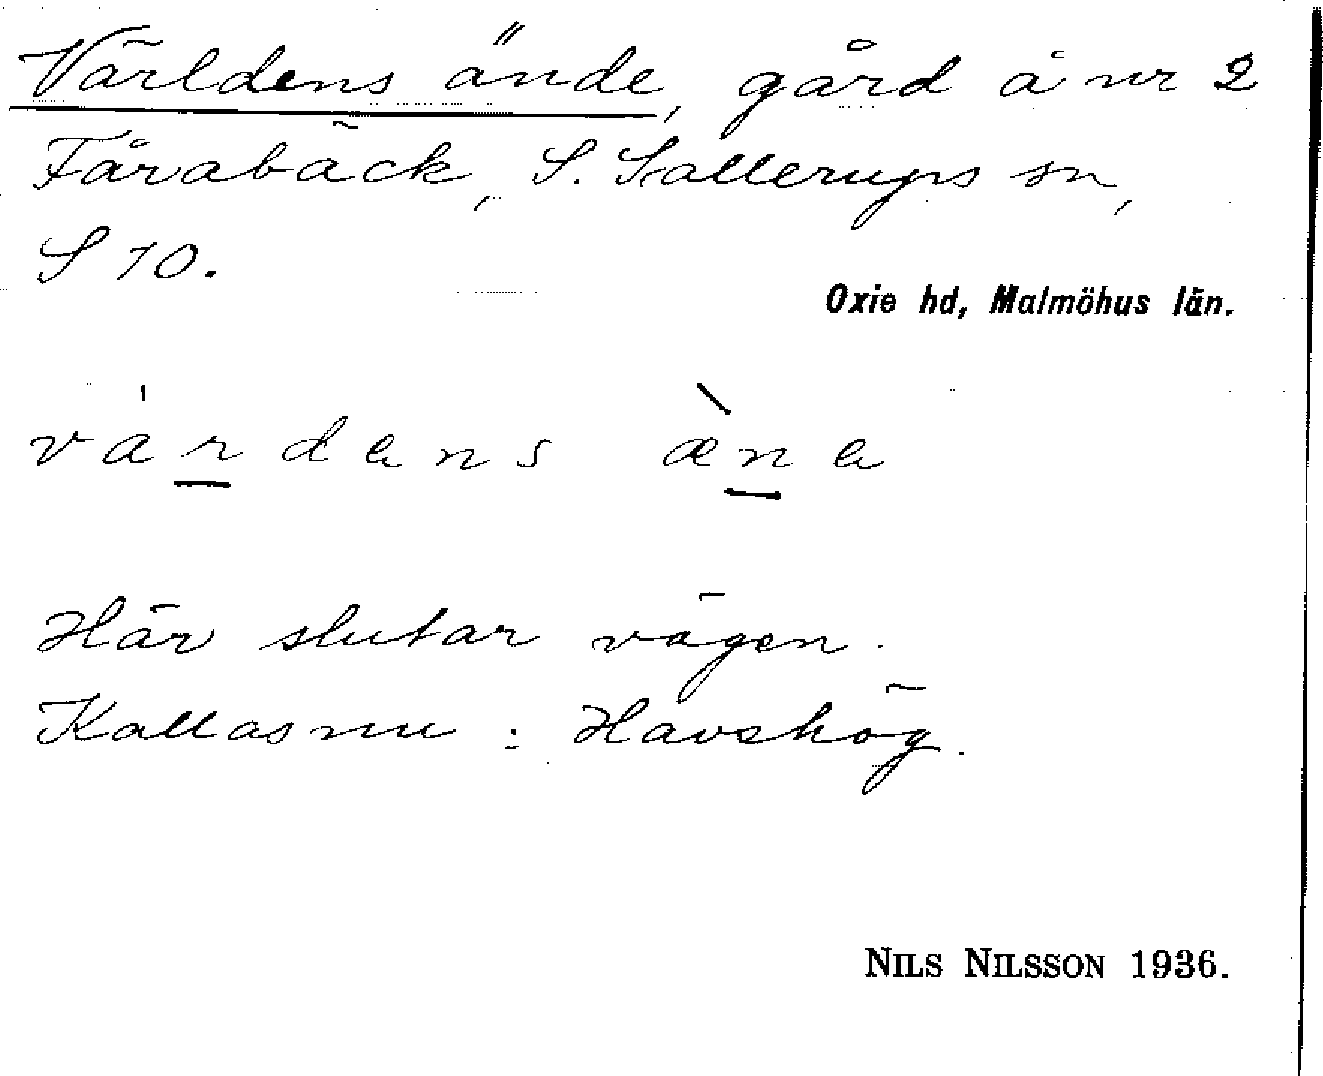 Världens ände, gård å nr 2
Fårabäck, S. Sallerups sn,
S 10.
Oxie hd, Malmöhus län.
várdens ὰne
Här slutar vägen.
Kallas nu: Havshög.
NILS NILSSON 1936.